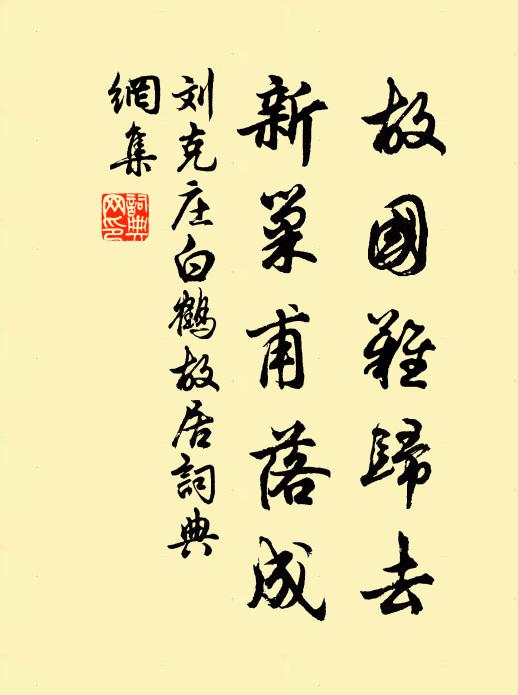 故國難歸去
新巢甫落成
刘克庄白鶴故居詞典
網集
詞典
网印